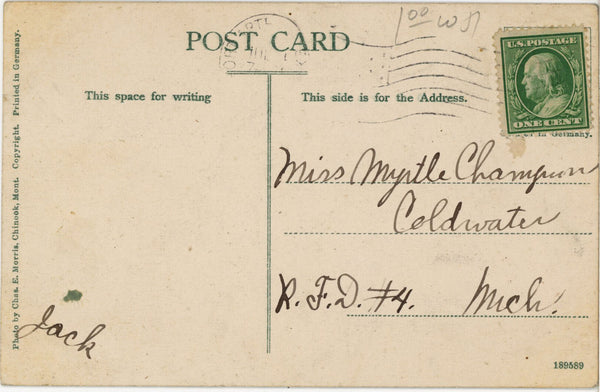 1 00 W51
POST CARD
U.S. POSTAGE
ONE CENT
This space for writing
This side is for the Address.
in Germany.
Photo by Chas. E. Morris, Chinook, Mont. Copyright. Printed in Germany.
Miss Myrtle Champion
Coldwater
R.F.D. #4. Mich.
Jack
189589